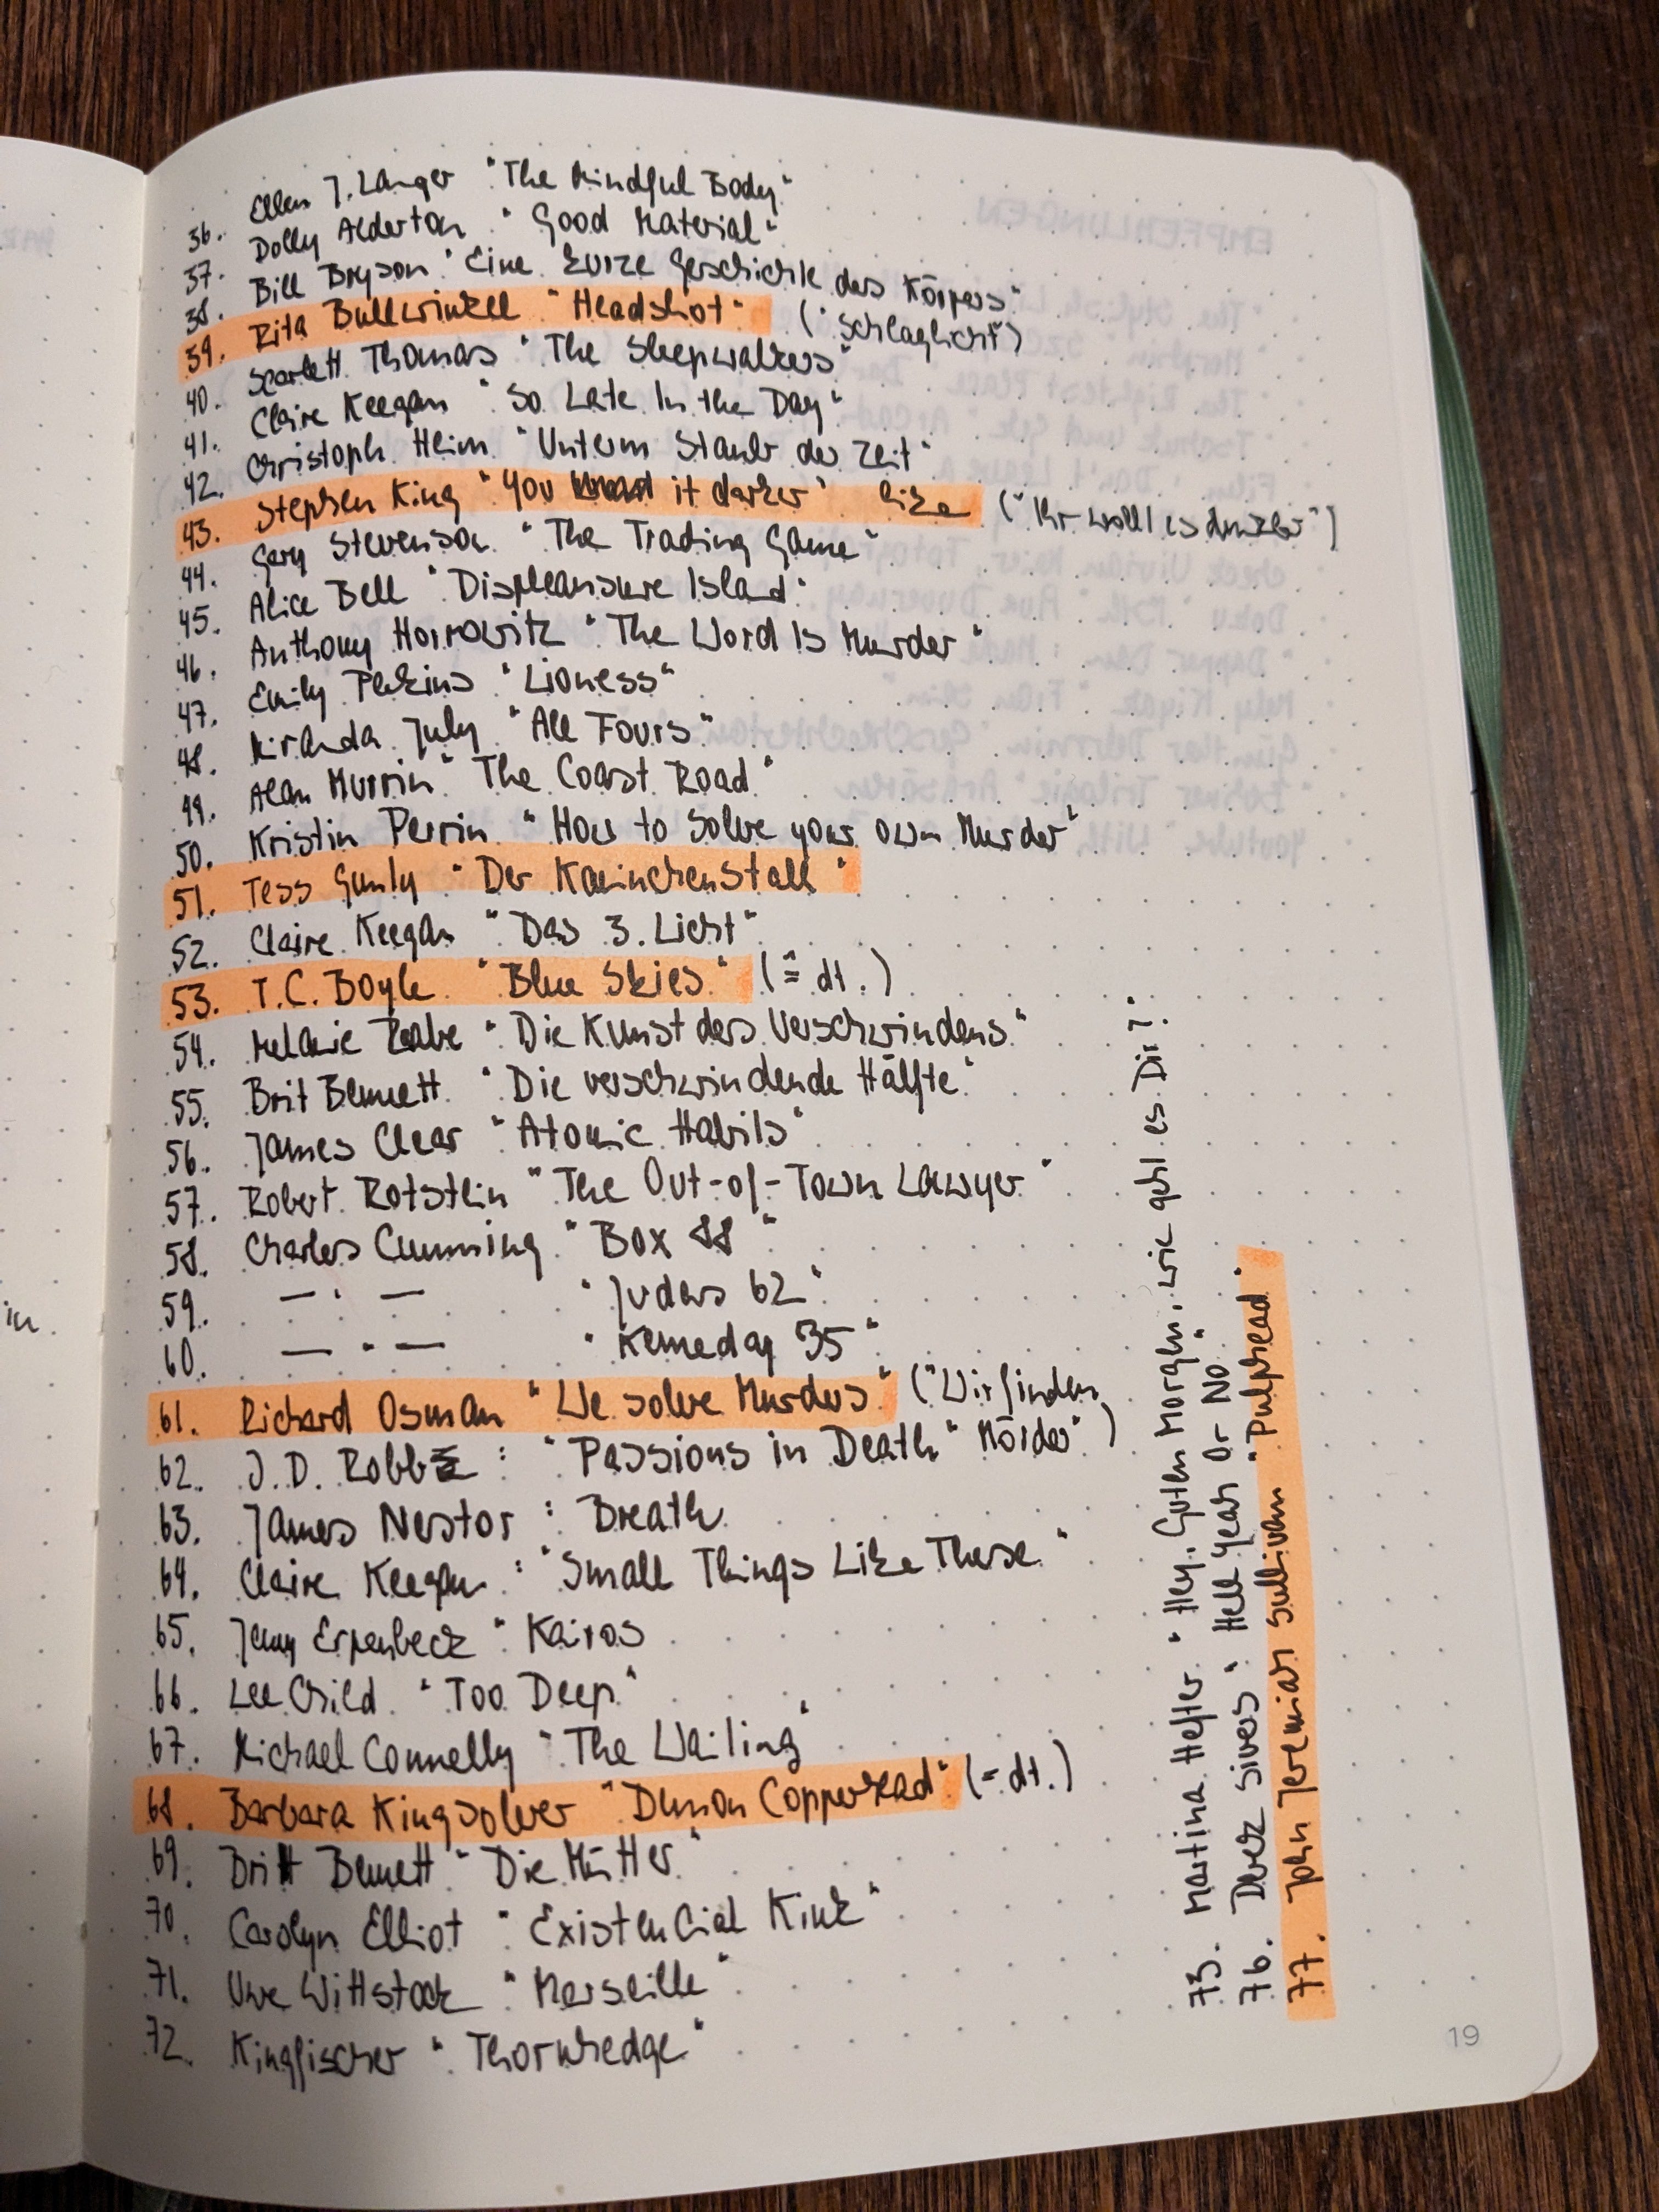 36. Ellen J. Langer "The Mindful Body"
37. Dolly Alderton "Good Material"
38. Bill Bryson "Eine kurze Geschichte des Körpers"
39. Rita Bullwinkel "Headshot" ("Schlaglicht")
40. Scarlett Thomas "The Sleepwalkers"
41. Claire Keegan "So Late In the Day"
42. Christoph Hein "Unterm Staub der Zeit"
43. Stephen King "You it darker" like ("Ihr wollt es dunkler")
44. Gary Stevenson "The Trading Game"
45. Alice Bell "Displeasure Island"
46. Anthony Horrowitz "The Word Is Murder"
47. Emily Perkins "Lioness"
48. Miranda July "All Fours"
49. Alan Murrin "The Coast Road"
50. Kristin Perrin "How to Solve your own Murder"
51. Tess Gunty "Der Kaninchenstall"
52. Claire Keegan "Das 3. Licht"
53. T.C. Boyle "Blue Skies" (≙ dt.)
54. Melanie Raabe "Die Kunst des Verschwindens"
55. Brit Bennett "Die verschwindende Hälfte"
56. James Clear "Atomic Habits"
57. Robert Rotstein "The Out-of-Town Lawyer"
58. Charles Cumming "Box 88"
59. — " — "Judas 62"
60. — " — "Kennedy 35"
61. Richard Osman "We solve Murders" ("Wir finden
Mörder")
62. J.D. Robb : "Passions in Death"
63. James Nestor : Breath
64. Claire Keegan : "Small Things Like These"
65. Jenny Erpenbeck "Kairos
66. Lee Child "Too Deep"
67. Michael Connelly "The Waiting"
68. Barbara Kingsolver "Demon Copperhead" (= dt.)
69. Britt Bennett "Die Mütter"
70. Carolyn Elliot "Existential Kink"
71. Uwe Wittstock "Marseille"
72. Kingfischer "Thornhedge"
75. Martina Hefter "Hey, Guten Morgen, wie geht es Dir?"
76. Derek Sivers "Hell Yeah Or No"
77. John Jeremiah Sullivan "Pulphead"
19